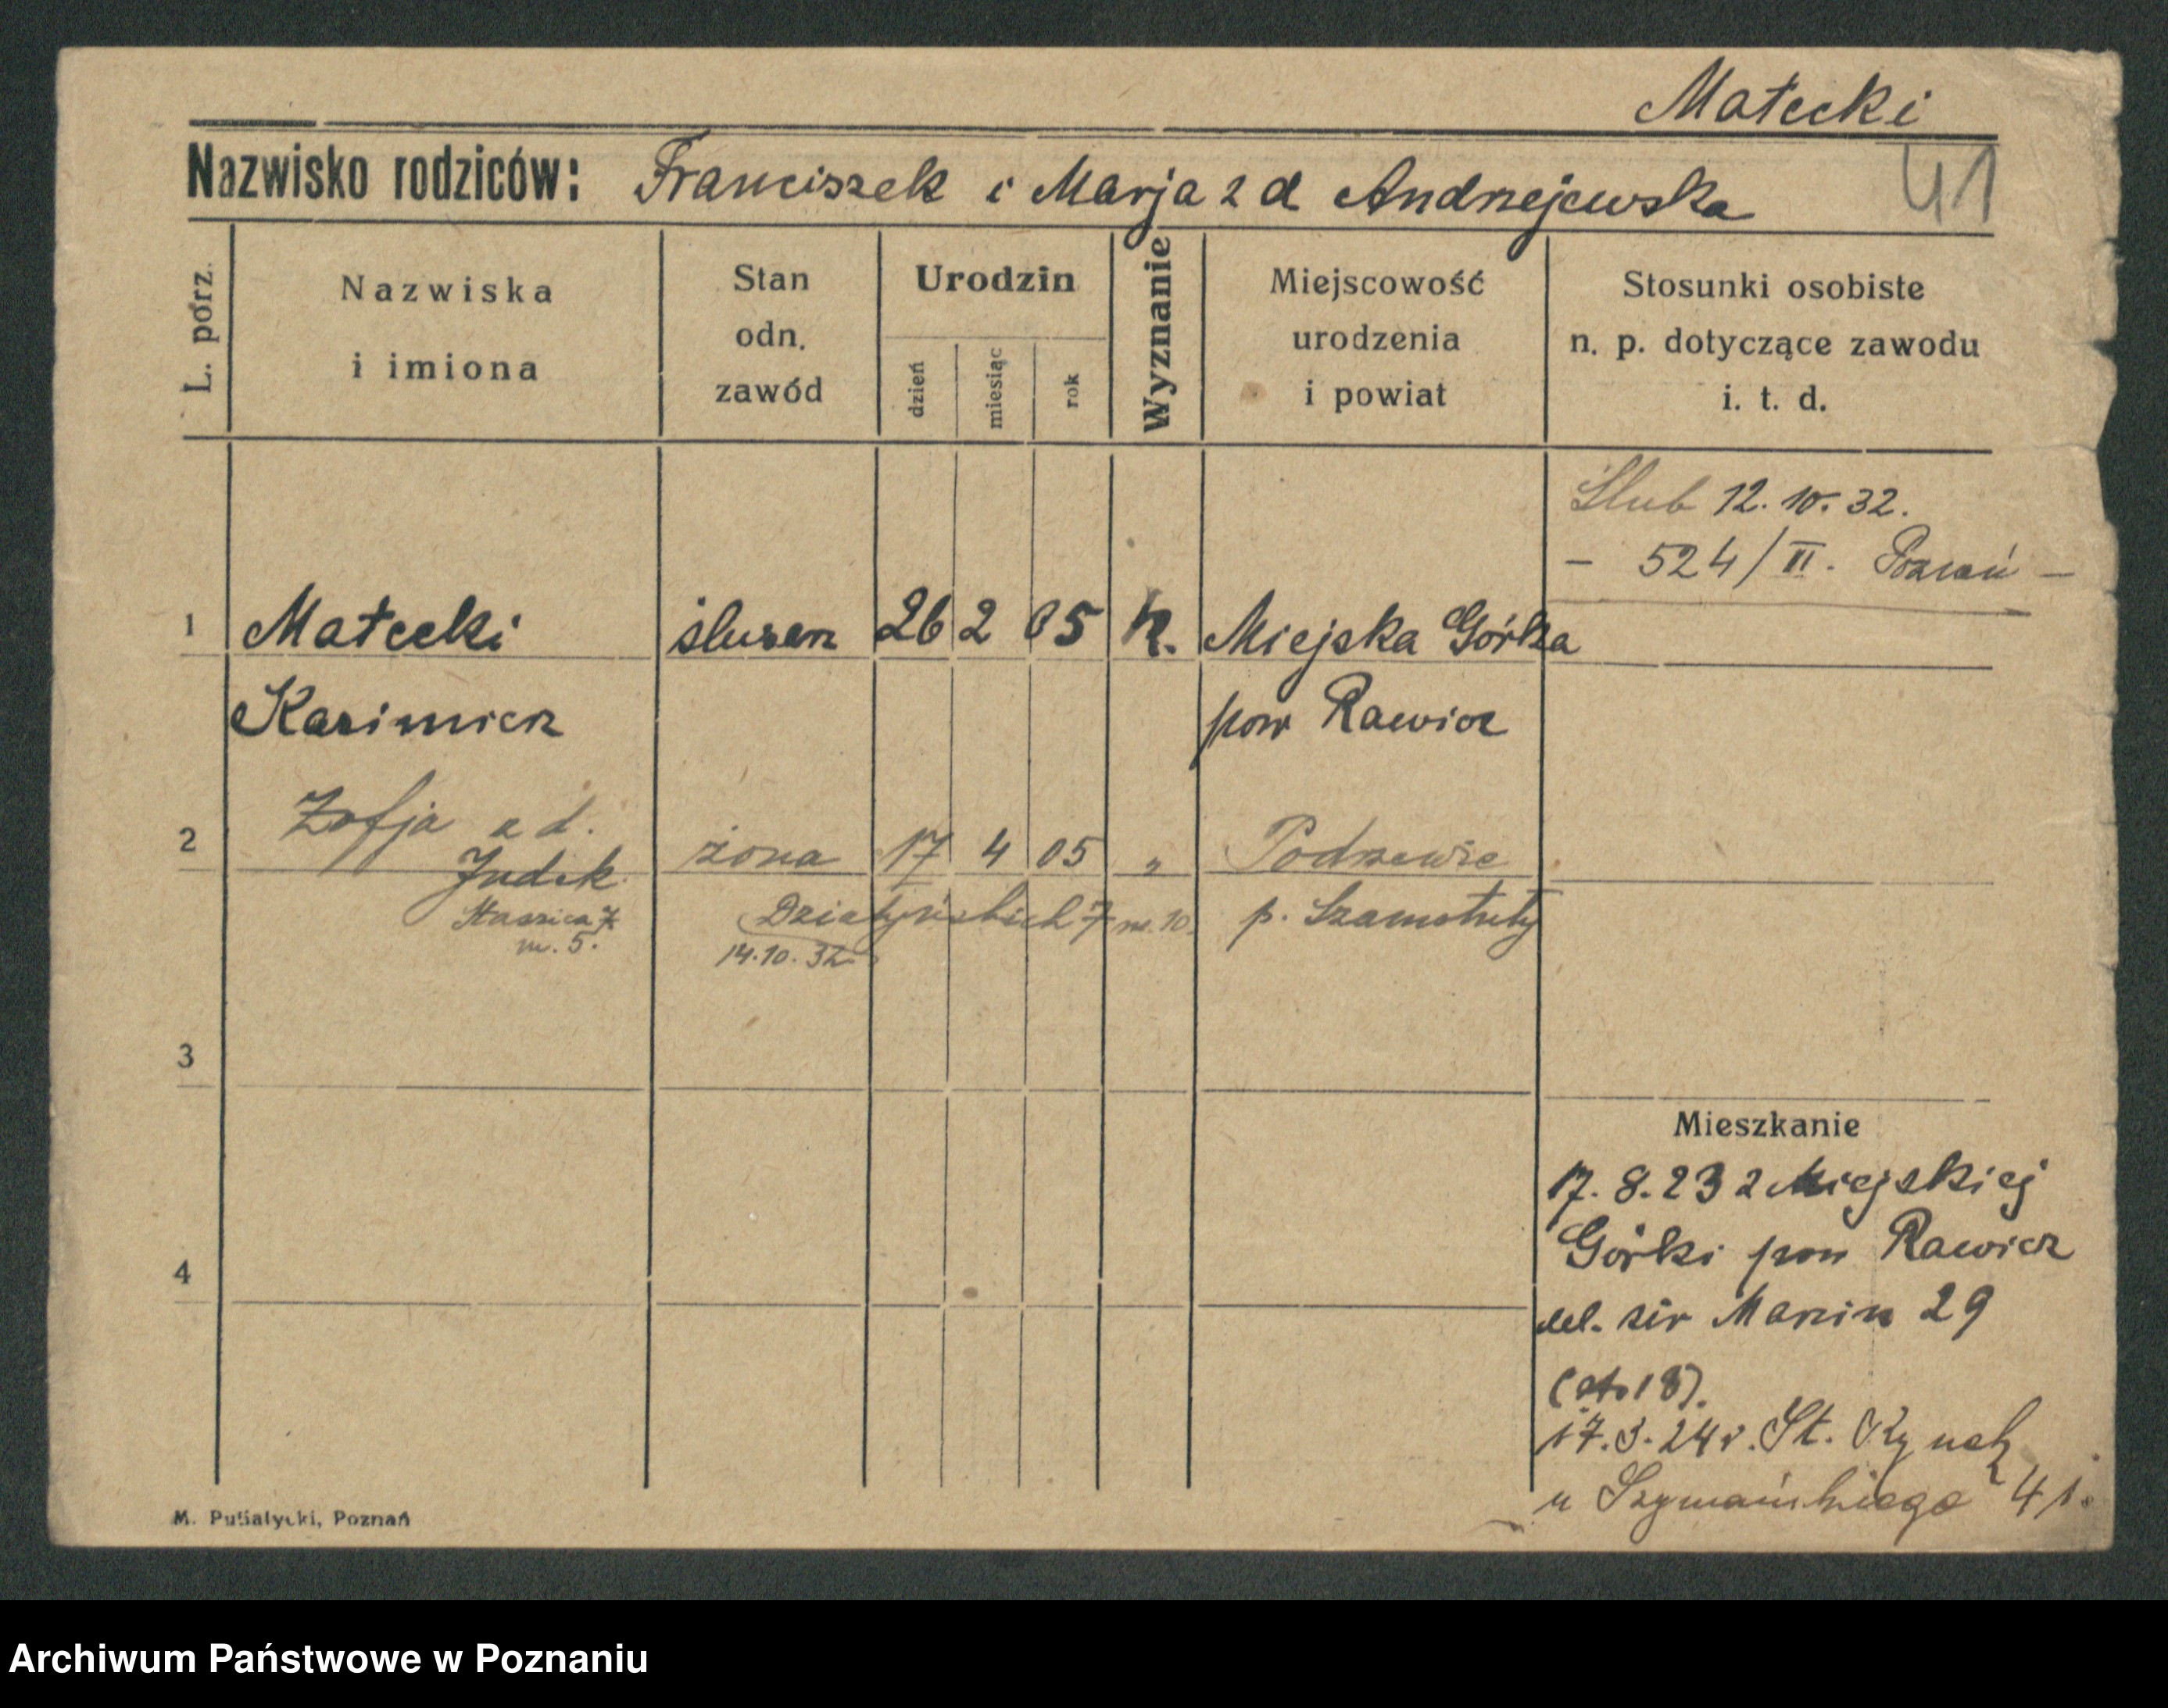 Małecki
Nazwisko rodziców: Franciszek i Marja z d Andrzejewska
41
L. porz.
Nazwiska
i imiona
Stan
odn.
zawód
Urodzin
dzień
miesiąc
rok
Wyznanie
Miejscowość
urodzenia
i powiat
Stosunki osobiste
n. p. dotyczące zawodu
i. t. d.
Ślub 12. 10. 32.
- 524/III. Poznań -
1 Małecki ślusarz 26 2 05 k. Miejska Górka
Kazimierz pow Rawicz
2 Zofja z d. żona 17 4 05 „ Podrzewie
Judek
Staszica 7 Działyńskich 7 m. 10. p. Szamotuły
m. 5. 14.10.32
3
Mieszkanie
17. 8. 23 z Miejskiej
Górki pow Rawicz
4
Marcin 29
17. 3. 24 r. St. Rynek
u Szymańskiego 41.
M. Putiatycki, Poznań
Archiwum Państwowe w Poznaniu